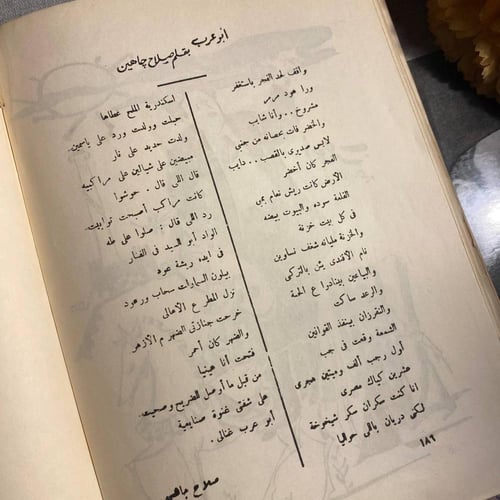 أبو عرب
بقلم صلاح چاهين
واقف لحد الفجر باستغفر
ورا عمود مرمر
مشروخ .. وأنا شاب
والخضر فات عصاته من جنبى
لابس صديرى بالقصب .. داب
الفجر كان أخضر
الأرض كانت ريش نعام بمبى
القلعة سوده والبيوت بيضه
فى كل بيت خزنة
والخزنة مليانه شغف نساوين
نام الأفندى يئن بالتركى
والبياعين بينادوا ع الجنة
والرعد ساكت
والنقرزان بينفذ القوانين
الشمعة وقعت فى جب
أول رجب ألف وميتين هجرى
عشرين كياك مصرى
انا كنت سكران سكر شيخوخة
لكنى دريان باللى حواليا
اسكندرية الملح غطاها
حبلت وولدت ورد على ياسمين
ولدت حديد على نار
مبيضين على شيالين على مراكبيه
قال اللى قال . حوشوا
كانت مراكب أصبحت توابيت
رد اللى قال : صلوا على طه
الواد أبو السيد فى الغسار
فى ايده ريشة عود
بيلون السماوات سحاب ورعود
نزل المطر ع الأهالى
خرجت جنازتى الضهر م الأزهر
والضهر كان أحمر
فتحت أنا عينيا
من قبل ما أوصل الضريح وصحيت
على شفتى غنوة صنايعية
أبو عرب غالى .
صلاح چاهين
١٨٢